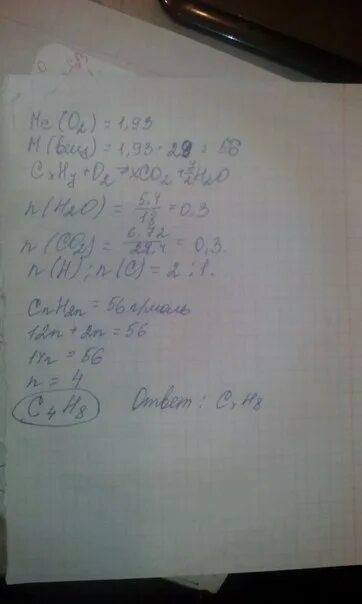 Mc(O₂) = 1,93
M(вещ) = 1,93 · 29 = 56
CxHy + O₂ → xCO₂ + y/2 H₂O
n(H₂O) = 5,4/18 = 0,3
n(CO₂) = 6,72/22,4 = 0,3.
n(H) : n(C) = 2 : 1.
CnH2n = 56 г/моль
12n + 2n = 56
14n = 56
n = 4
C₄H₈
Ответ: C₄H₈